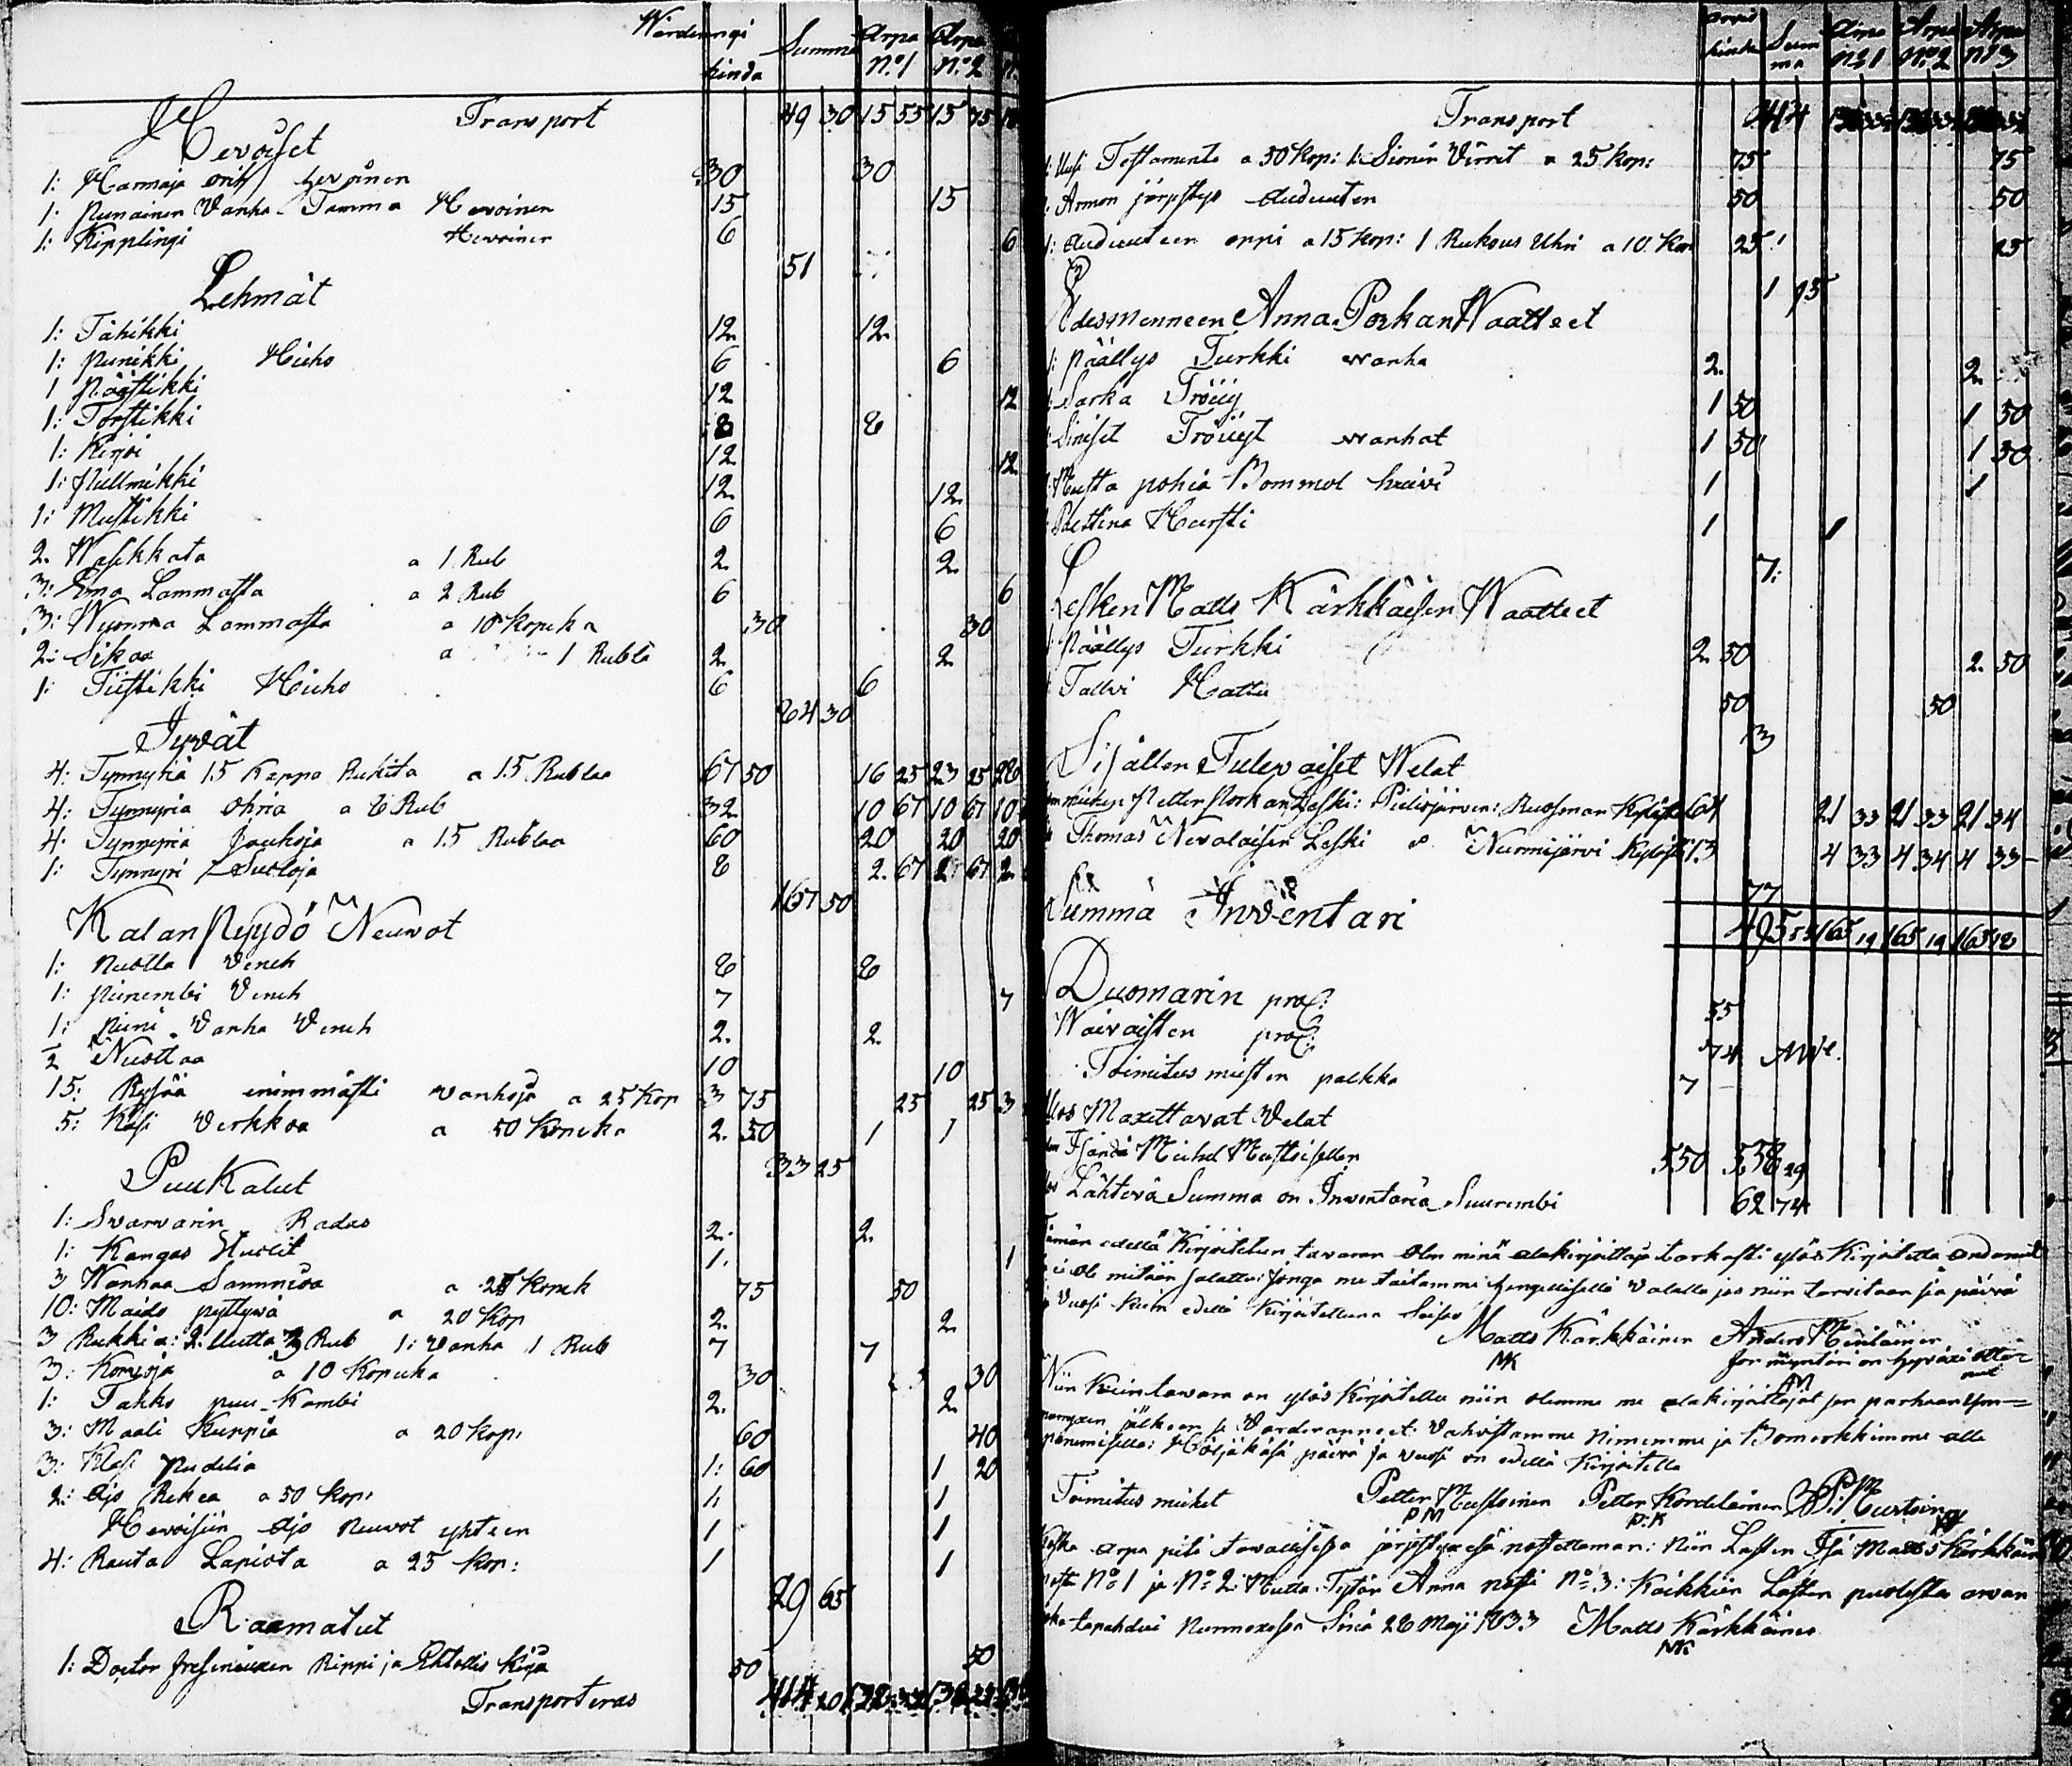 Wärderingi hinda Summa Arpa N:o 1 Arpa N:o 2
Transport 49 30 15 55 15 75
Hevoiset
1: Harmaja orih hevoinen 30 30
1: Punainen Vanha Tamma Hevoinen 15 15
1: Kipplingi Hevoinen 6 6
51
Lehmät
1: Tähikki 12. 12.
1: Punikki Hieho 6 6
1 Päästikki 12 12
1: Torstikki 8 8
1: Kirjoi 12 12.
1: Pullmikki 12. 12.
1: Mustikki 6 6
2. Wasikkata a 1 Rub 2. 2.
3: Ema Lammasta a 2 Rub 6 6
3: Wuonna Lammasta a 10 kopeka 30 30
2: Sikaa a 1 Rubla 2. 2.
1: Tiistikki Hieho 6 6
84 30
Jyvät
4: Tynnyriä 15 Kappa Rukita a 15 Rublaa 67 50 16 25 23 25 28
4: Tynnyria Ohria a 8 Rub 32. 10 67 10 67 10
4: Tynnyria Jauhoja a 15 Rublaa 60 20 20 20
1: Tynnyri Suoloja 8 2. 67 2 67 2.
167 50
Kalan Pyydö Neuvot
1: Nuotta Veneh 8 8
1: Pienembi Veneh 7 7
1: Pieni Vanha Veneh 2. 2.
1/2 Nuottaa 10 10
15: Rysää enimmästi vanhoja a 25 Kop 3 75 25 25 3
5: Käsi Verkkoa a 50 Kopeka 2. 50 1 1
33 25
Puu Kalut
1: Svarvarin Radas 2. 2.
1: Kangas Huolit 1. 1
3 Wanhaa Sammioa a 25 Kopek 75 50
10: Maido pyttywä a 20 Kop 2. 2.
3 Rukkia: 2. Uutta 3 Rub 1: Vanha 1 Rub 7 7
3: Korvoja a 10 Kopeeka 30 30
1: Tahko puu Kambi 2. 2.
3: Maali Kuppia a 20 kop: 60 40
3: Klasi Pudelia 1: 60 1 20
2: Ajo Rekea a 50 kop: 1. 1
Hevoisiin Ajo neuvot yhteen 1 1
4: Rauta Lapiota a 25 kop: 1 1
29 65
Raamatut
1: Doctor Freseniuxen Rippi ja Ehtollis Kirja 50 50
Transporteras 414 20
hinda Summa Arpa N:o 1 Arpa N:o 2 Arpa N:o 3
Transport 414
1: Uusi Testamenti a 50 kop: 1: Sionin Virret a 25 kop: 75 75
1: Armon järjestys Auduuten 50 50
1: Auduuteen oppi a 15 kop: 1 Rukous Uhri a 10 Kop 25 25
1 95
Edesmenneen Anna Porkan Waatteet
1: päällys Turkki wanha 2. 2.
1: Sarka Tröijy 1 50 1 50
Siniset Tröijyt wanhat 1 50 1 50
1: Musta pohia Bommol huivi 1 1
Plettina Hursti 1 1
7:
Lesken Matts Kärkkäisen Waatteet
1: Päällys Turkki 2. 50 2. 50
Tallvi Hattu 50 50
3
Sisällen Tulevaiset Welat
miehen Petter Porkan Leski: Pielisjärven: Ruosman Kylästä 64 21 33 21 33 21 34
Thomas Nevalaisen Leski Nurmijärvi Kylöstä 13 4 33 4 34 4 33
77
Summa Inventari 495 55 165 19 165 19 165 18
Duomarin proc: 55
Waivaisten proc: 74
Toimitus miesten palkka 7
Ulos Maxettavat Velat
Isändä Michel Mustoisellen 550 558 29
Lähtevä Summa on Inventaria Suurembi 62 74
Tämän edellä Kirjoitetun tavaran Olen minä alakirjoittaja tarkasti ylös Kirjoitetta andanut
ei ole mitään salattu: jonga me taitamme hengellisellä Valalla jos niin tarvitaan sia päivä
ja Vuosi kuin edellä Kirjoitettuna Seisoo
Matts Kärkkäinen Anders Meriläinen
MK for myntäri on hyväxi ottanut
AM
Niin Kuin tavara on ylös Kirjoitettu niin olemme me alakirjoittajat sen parhaan ymmärryxen jälkeen ja Varderanneet: Vahvistamme Nimemme ja Bomerkkimme alle
panemisella: Höljäkäsä päivä ja vuosi on edellä Kirjoitettu
Toimitus miehet Petter Mustoinen Petter Kordelainen P: Murtoinen
PM P:K
Koska arpa piti tavallisessa järjestyxesä nostettaman: Niin Lasten Isä Matts Kärkkäinen
nosti N:o 1 ja N:o 2: Mutta Tytär Anna nosti N:o 3: Kaikkiin Lasten puolesta arvan
joka tapahdui Nurmexessa Sinä 28 Maji 1833 Matts Kärkkäinen
MK